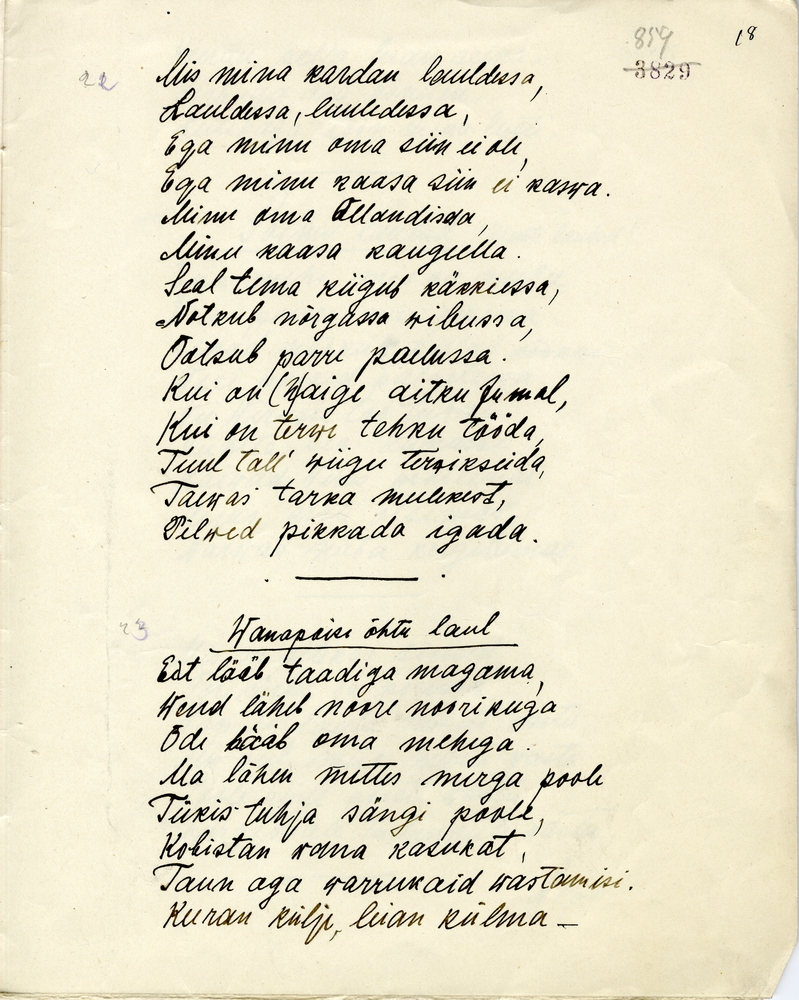 18
859
3829
22
Mis mina kardan lauldessa,
Lauldessa, luuledessa,
Ega minu oma siin ei ole,
Ega minu kaasa siin ei kaswa.
Minu oma Ollandisda,
Minu kaasa kaugeella.
Seal tema kiigub käkkiessa,
Notkub nõrgassa wibussa,
Õõtsub parre paelussa.
Kui on (h)aige aitku Jumal,
Kui on terwe tehku tööda,
Tuul tall' wiigu terwikseida,
Taewas tarka meelekest,
Pilwed pikkada igada.
23
Wanapoisi õhtu laul
Eit lääb taadiga magama,
Wend läheb noore noorikuga
Õde lääb oma mehega.
Ma lähen mättes merga poole
Tükis tühja sängi poole,
Kobistan wana kasukat,
Taun aga warrukaid wastamisi.
Keeran külje, leian külma –